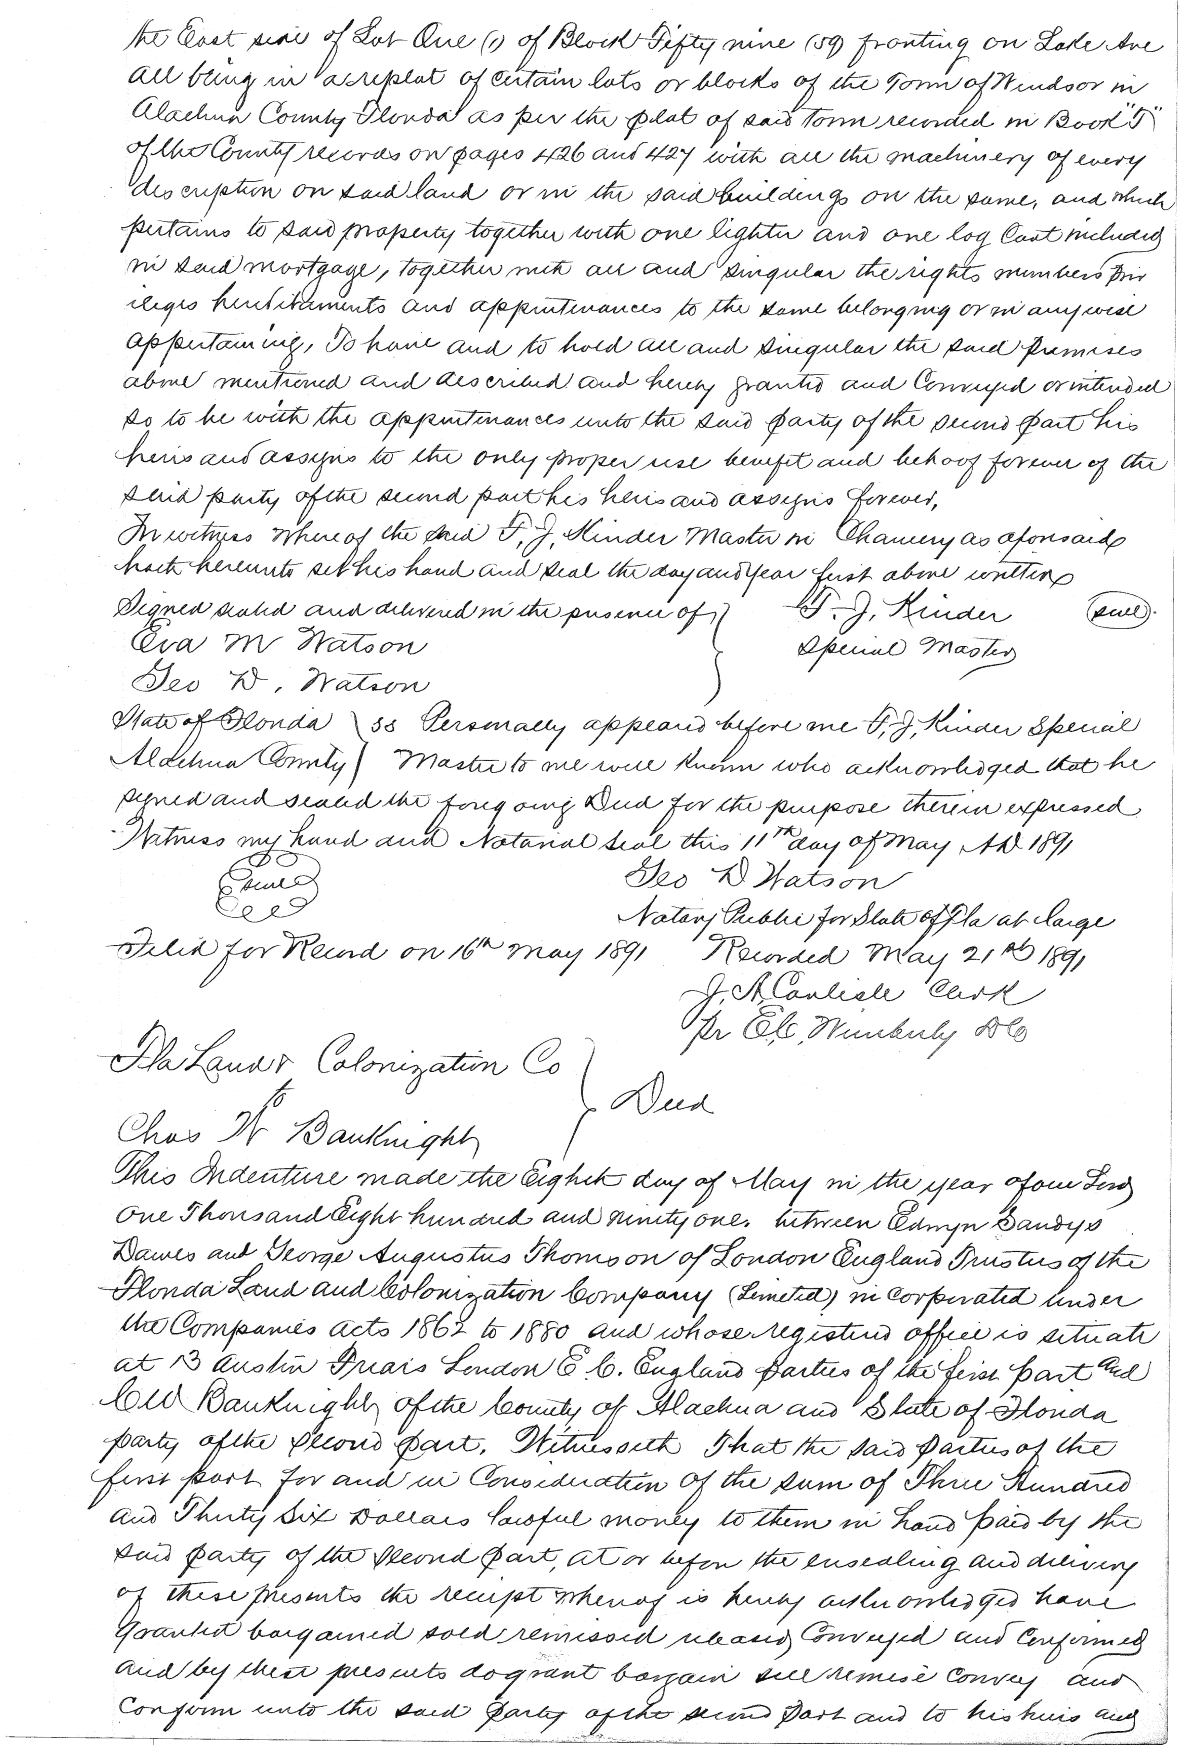 the East side of Lot One (1) of Block Fifty nine (59) fronting on Lake Ave
all being in a replat of certain lots or blocks of the Town of Windsor in
Alachua County Florida as per the plat of said Town recorded in Book "T"
of the County records on pages 426 and 427 with all the machinery of every
description on said land or in the said buildings on the same, and which
pertains to said property together with one lighter and one log Cart included
in said mortgage, together with all and singular the rights members priv
ileges hereditaments and appurtenances to the same belonging or in anywise
appertaining, To have and to hold all and singular the said premises
above mentioned and described and hereby granted and Conveyed or intended
so to be with the appurtenances unto the said party of the second part his
heirs and assigns to the only proper use benefit and behoof forever of the
said party of the second part his heirs and assigns forever,
In witness whereof the said T, J, Kinder Master in Chancery as aforesaid
hath hereunto set his hand and seal the day and year first above written
Signed sealed and delivered in the presence of, } T. J, Kinder (seal).
Eva M Watson Special Master
Geo D. Watson
State of Florida } ss Personally appeared before me T, J, Kinder Special
Alachua County } Master to me well known who acknowledged that he
signed and sealed the foregoing Deed for the purpose therein expressed
Witness my hand and Notarial seal this 11th day of May AD 1891
Geo D Watson
Seal
Notary Public for State of Fla at large
Filed for Record on 16th May 1891 Recorded May 21st 1891
J. A, Carlisle Clerk
Pr E.C, Wimberly DC
Fla Land & Colonization Co
to } Deed
Chas W Bauknight
This Indenture made the Eighth day of May in the year of our Lord
One Thousand Eight hundred and ninety one. between Edwyn Sandys
Dawes and George Augustus Thomson of London England Trustees of the
Florida Land and Colonization Company (Limeted) in corporated under
the Companies Acts 1862 to 1880 and whose registered office is situate
at 13 Austin Friars London E.C. England parties of the first part and
C W Bauknight of the County of Alachua and State of Florida
party of the second part. Witnesseth That the said parties of the
first part for and in Consideration of the sum of Three Hundred
and Thirty Six Dollars lawful money to them in hand paid by the
said party of the second part, at or before the ensealing and delivery
of these presents the receipt whereof is hereby acknowledged have
Granted bargained sold remissed released Conveyed and Confirmed
and by these presents do grant bargain sell remise convey and
Confirm unto the said party of the second part and to his heirs and